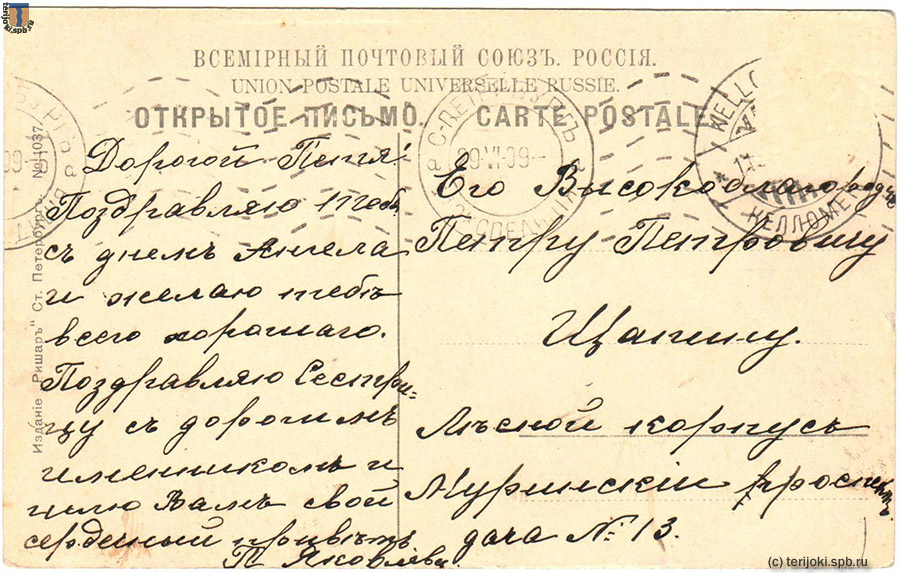 terijoki.spb.ru
ВСЕМІРНЫЙ ПОЧТОВЫЙ СОЮЗЪ. РОССІЯ.
UNION POSTALE UNIVERSELLE RUSSIE.
ОТКРЫТОЕ ПИСЬМО. CARTE POSTALE.
Дорогой Петя!
Поздравляю тебя
съ днемъ Ангела
и желаю тебѣ
всего хорошаго.
Поздравляю Сестри-
цу съ дорогимъ
имянникомъ и
шлю Вамъ свой
сердечный привѣтъ
П. Яковлева
Его Высокоблагородію
Петру Петровичу
Щапину.
Лѣсной корпусъ
Муринскій проспектъ
дача № 13.
Изданіе „Ришаръ" Ст. Петербургъ. № 1037.
29·VI·09
KELLO
КЕЛЛОМЯ
(c) terijoki.spb.ru